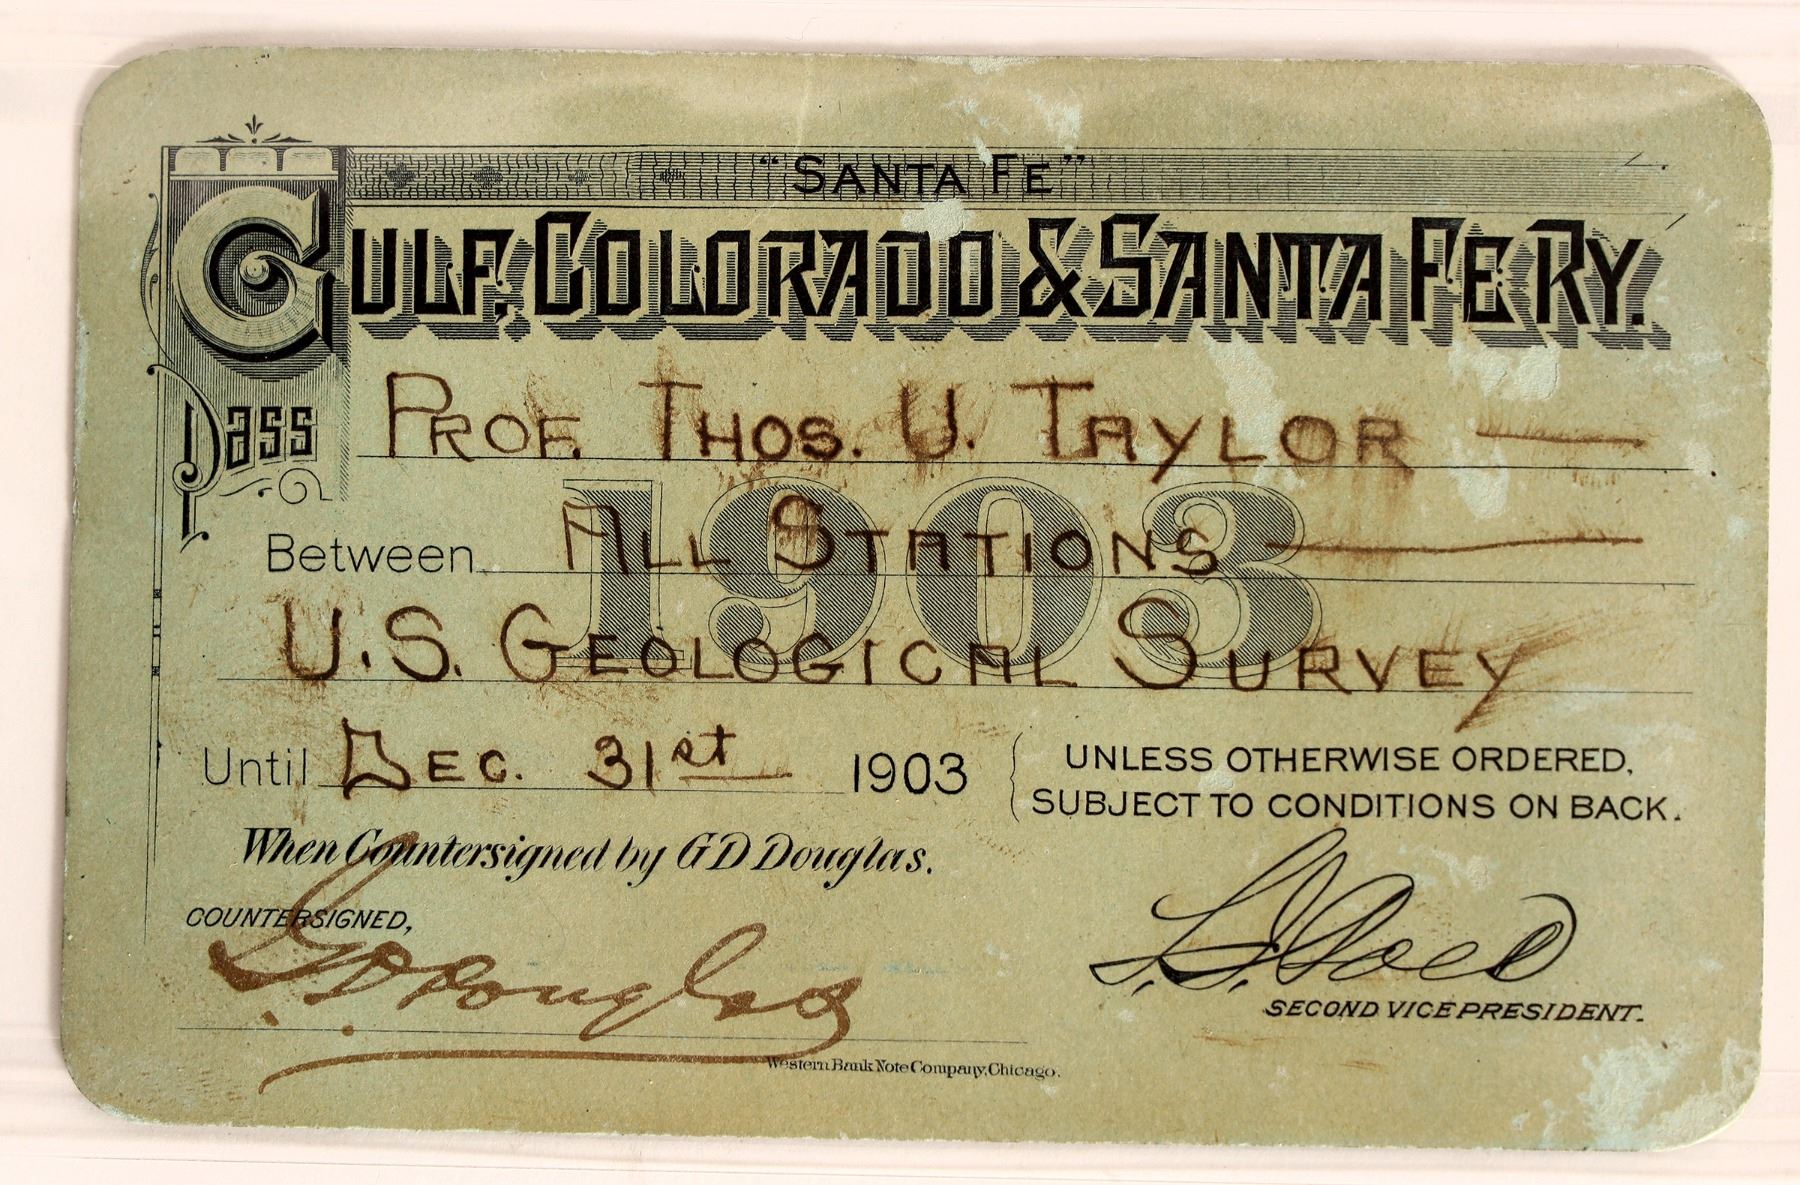 "SANTA FE"
GULF, COLORADO & SANTA FE RY.
Pass PROF. THOS. U. TAYLOR
1903
Between ALL STATIONS
U.S. GEOLOGICAL SURVEY
Until DEC. 31st 1903
UNLESS OTHERWISE ORDERED,
SUBJECT TO CONDITIONS ON BACK.
When Countersigned by G D Douglas.
COUNTERSIGNED,
G D Douglas
SECOND VICE PRESIDENT.
Western Bank Note Company, Chicago.